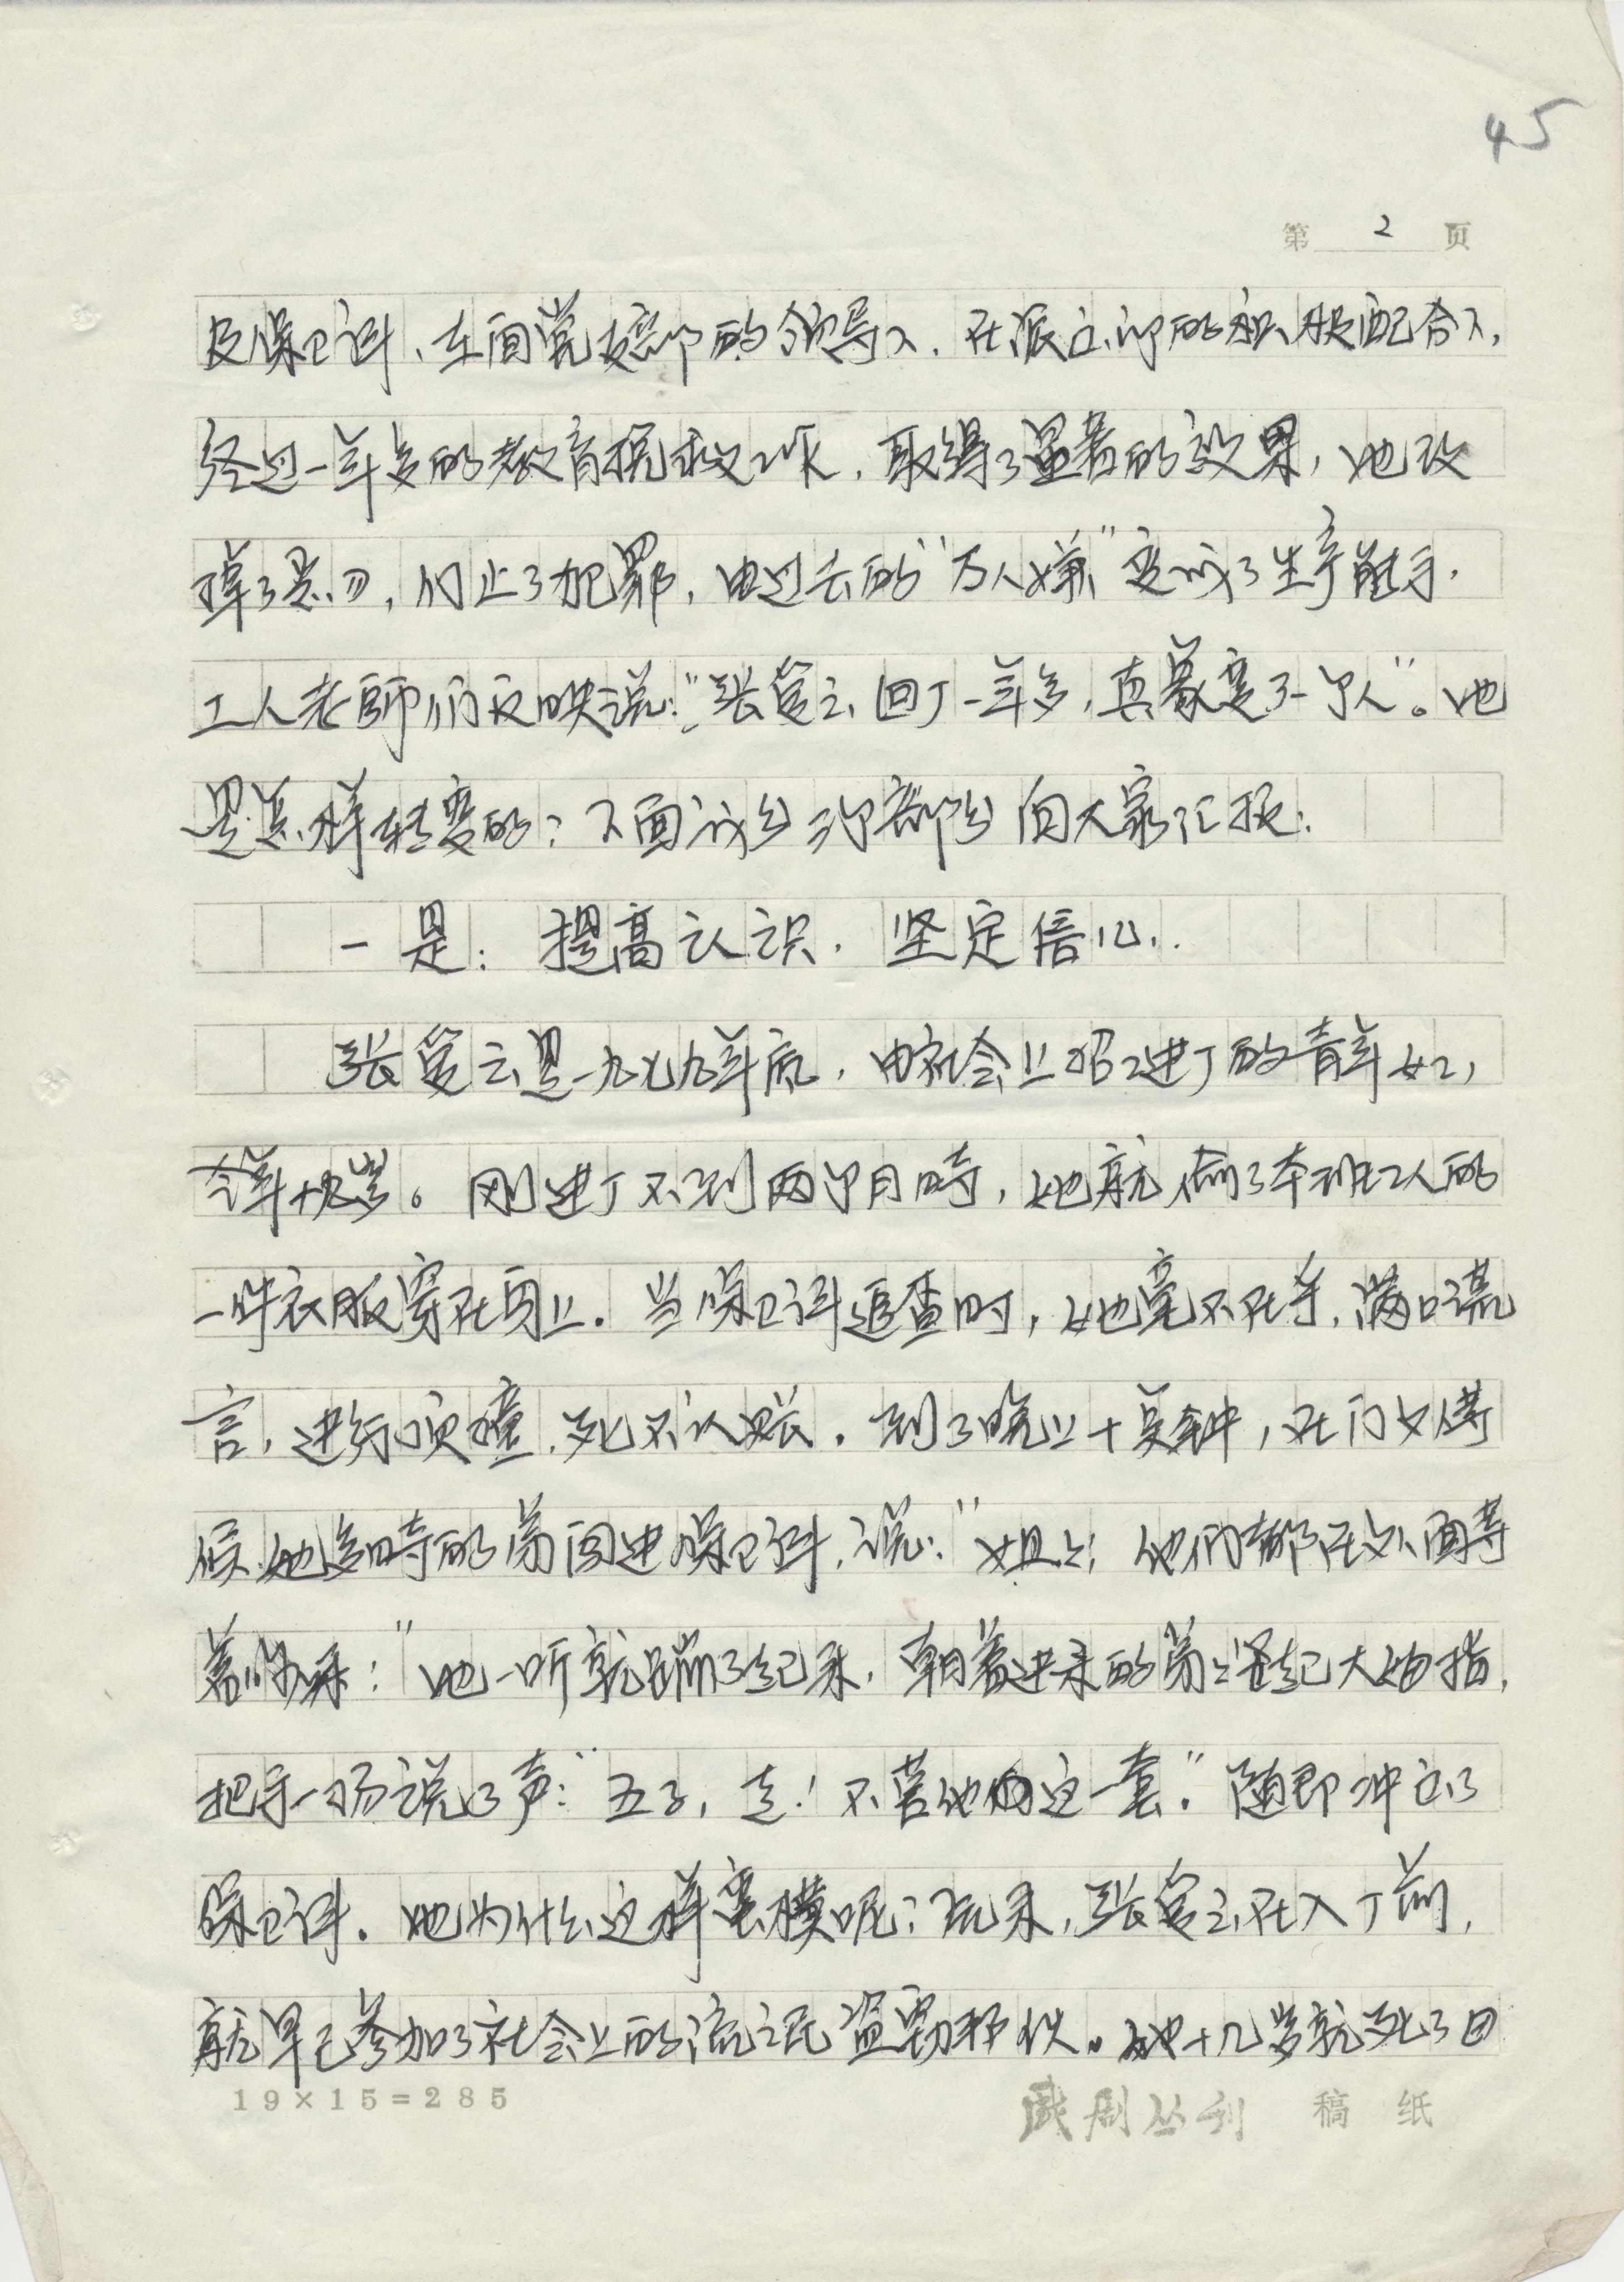 45
第 2 页
及保卫科、车间党支部的领导下，在派出所的积极配合下，
经过一年多的教育挽救工作，取得了显著的效果，她改
掉了恶习，停止了犯罪，由过去的“万人嫌”变成了生产能手。
工人老師们反映说：“张 云回厂一年多，真象变了一个人”。她
是怎样转变的？下面试分三个部分向大家汇报：
一是：提高认识，坚定信心。
张 云是一九七九年底，由社会上招工进厂的青年女工，
今年十九岁。刚进厂不到两个月時，她就偷了本班工人的
一件衣服穿在身上。当保卫科追查时，她毫不在乎，满口谎
言，进行顶撞，死不认账。到了晚上十点钟，在门外等
候她多時的弟闯进保卫科，说：“姐姐，他们都在外面等
着你呐！”她一听就蹦了起来，朝着进来的弟弟竖起大姆指，
把手一扬说了声：“五子，走！不管他们这一套。”随即冲出了
保卫科。她为什么这样蛮横呢？原来，张 云在入厂前，
就早已参加了社会上的流氓盗窃那伙。她十几岁就死了母
19×15=285
戏剧丛刊 稿纸